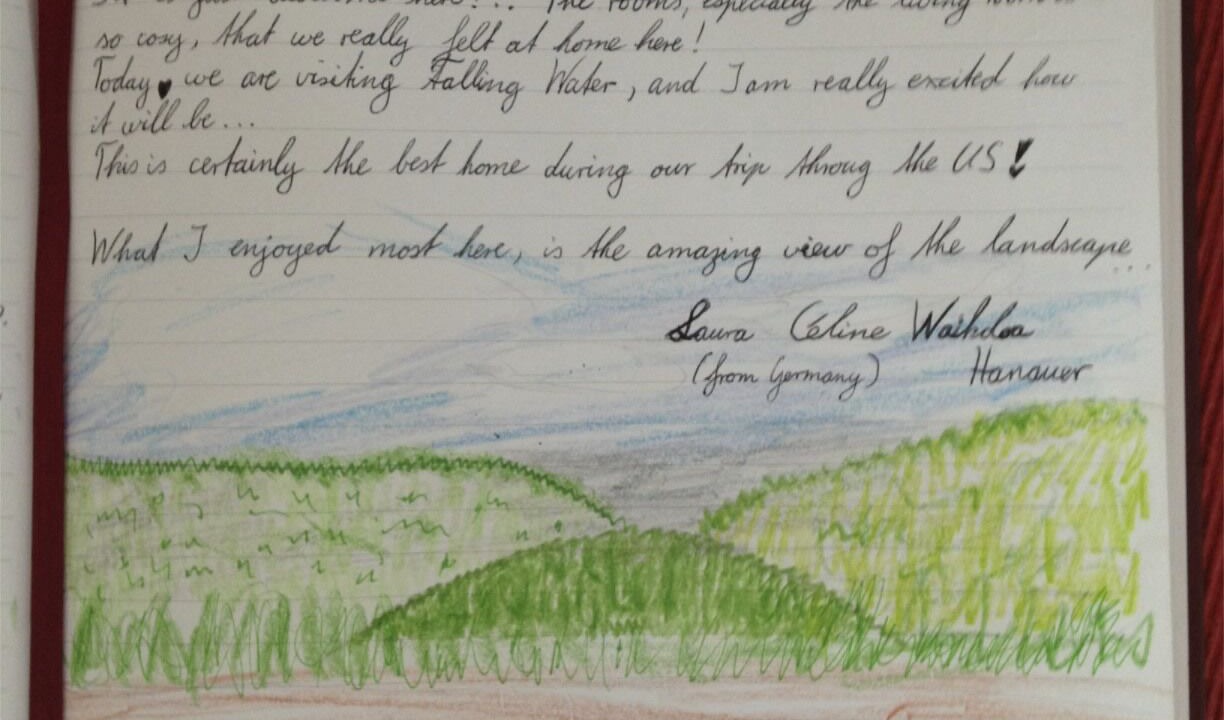 The rooms, especially the living room is
so cosy, that we really felt at home here!
Today, we are visiting Falling Water, and I am really excited how
it will be...
This is certainly the best home during our trip throug the US!
What I enjoyed most here, is the amazing view of the landscape...
Laura Céline
(from Germany) Hanauer